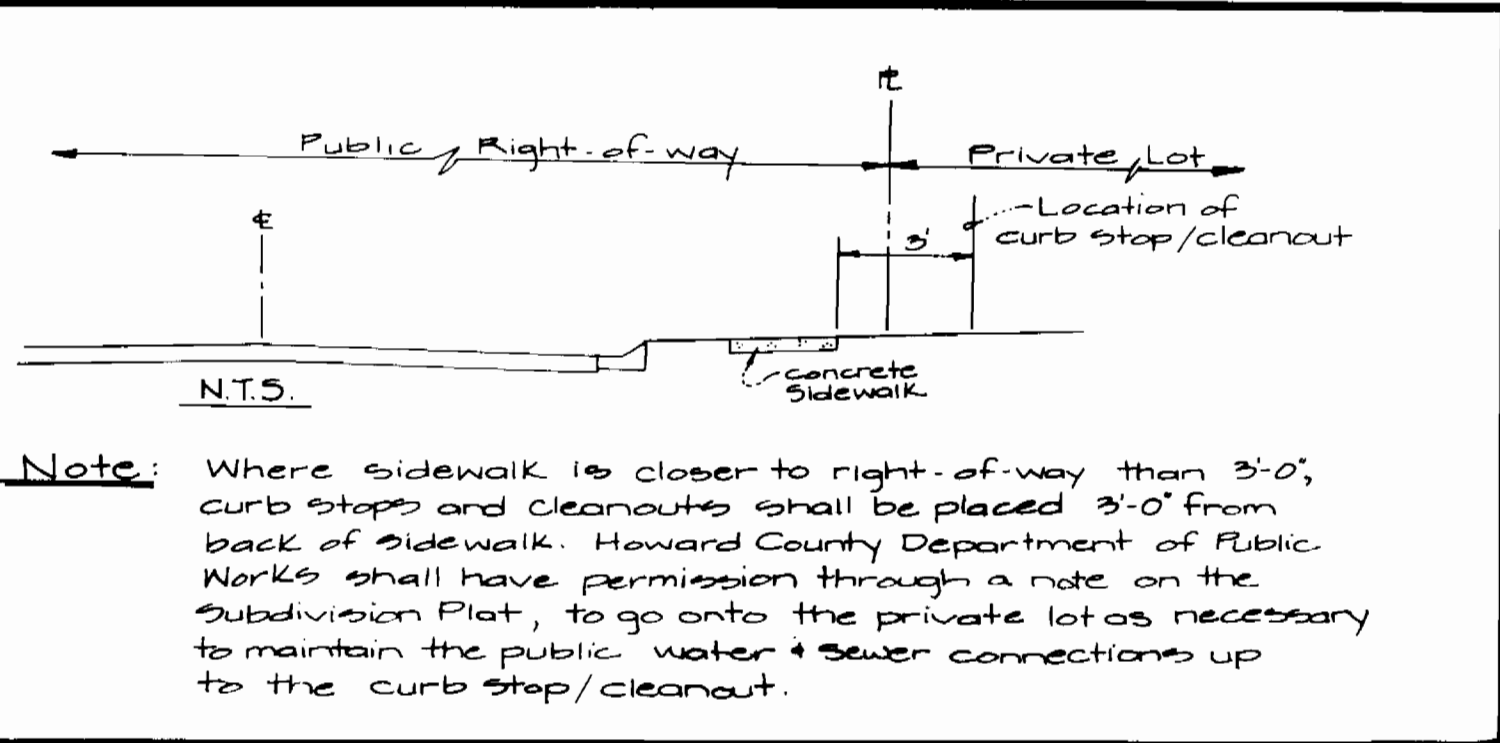 ℄
Public Right-of-way
Private Lot
℄
Location of
curb stop/cleanout
3'
concrete
Sidewalk
N.T.S.
Note: Where sidewalk is closer to right-of-way than 3'-0",
curb stops and cleanouts shall be placed 3'-0" from
back of sidewalk. Howard County Department of Public
Works shall have permission through a note on the
Subdivision Plat, to go onto the private lot as necessary
to maintain the public water & sewer connections up
to the curb stop/cleanout.